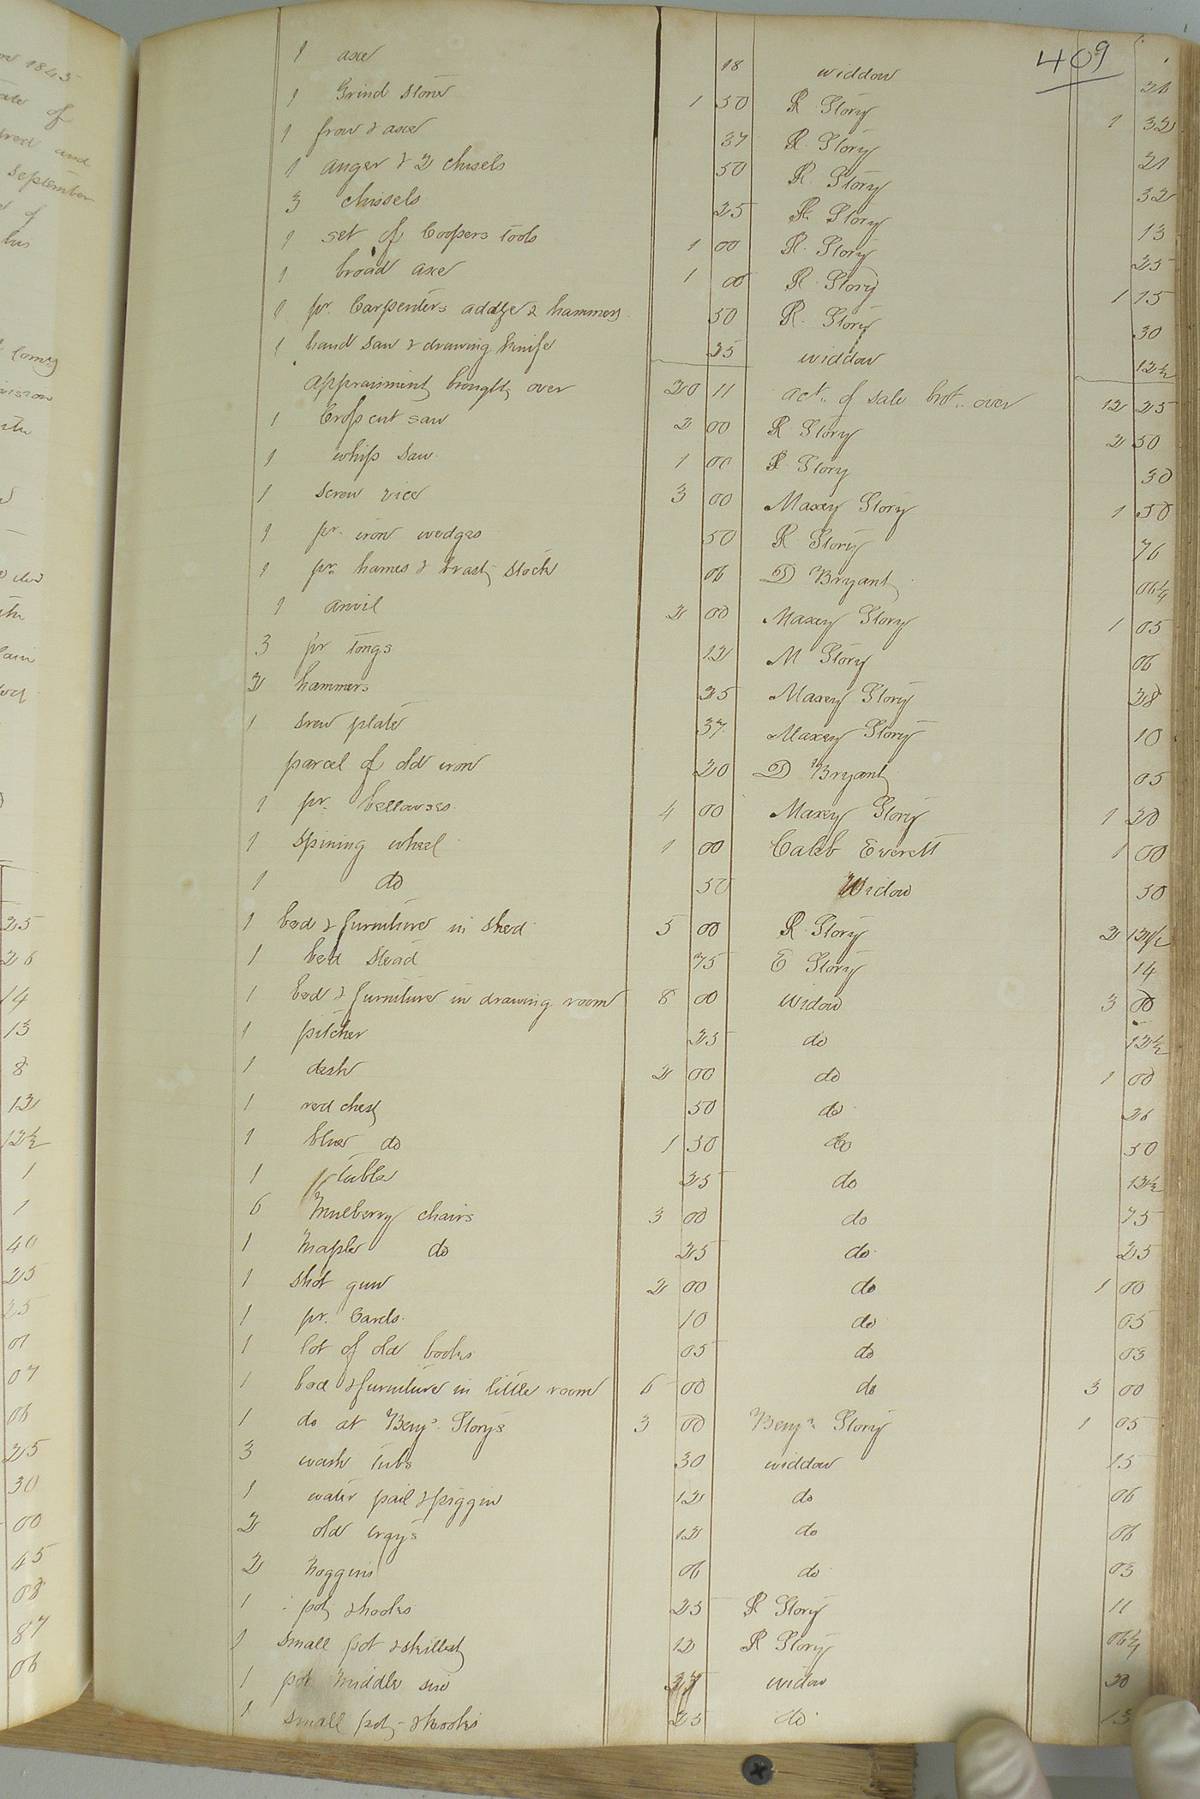 409
1 axe 18 widdow 21
1 Grind stone 1 50 R Story 1 32
1 frow & axe 37 R. Story 21
1 auger & 2 chisels 50 R Story 32
3 chissels 25 R. Story 13
1 set of Coopers tools 1 00 R. Story 25
1 broad axe 1 00 R. Story 1 15
1 pr. Carpenters addze & hammers 50 R. Story 30
1 hand saw & drawing knife 25 widdow 12½
Appraisment brought over 20 11 act. of sale brot. over 12 25
1 Cross cut saw 2 00 R Story 2 50
1 whip saw 1 00 R Story 30
1 screw vice 3 00 Maxey Story 1 50
1 pr. iron wedges 50 R Story 76
1 pr. hames & brest stock 06 D Bryant 06¼
1 anvil 2 00 Maxey Story 1 05
3 pr tongs 12 M Story 06
2 hammers 25 Maxey Story 28
1 srew plate 37 Maxey Story 10
parcel of old iron 20 D Bryant 05
1 pr. bellowses 4 00 Maxey Story 1 20
1 spining wheel 1 00 Caleb Everett 1 00
1 do 50 Widow 50
1 bed & furniture in shed 5 00 R. Story 2 12½
1 bed stead 75 E Story 14
1 bed & furniture in drawing room 8 00 widow 3 00
1 pitcher 25 do 12½
1 desk 2 00 do 1 00
1 red chest 50 do 26
1 blue do 1 50 do 50
1 table 25 do 12½
6 Mulberry chairs 3 00 do 75
1 Maple do 25 do 25
1 shot gun 2 00 do 1 00
1 pr. Cards 10 do 05
1 lot of old books 05 do 03
1 bed & furniture in little room 6 00 do 3 00
1 do at Benj. Storys 3 00 Benj. Story 1 05
3 wash tubs 30 widdow 15
1 water pail & piggin 12 do 06
2 old 12 do 06
2 Noggins 06 do 03
1 pot & hooks 25 R Story 11
1 small pot & skillet 12 R Story 06¼
1 pot middle sise widow 20
1 small pot & hooks 25 do 13